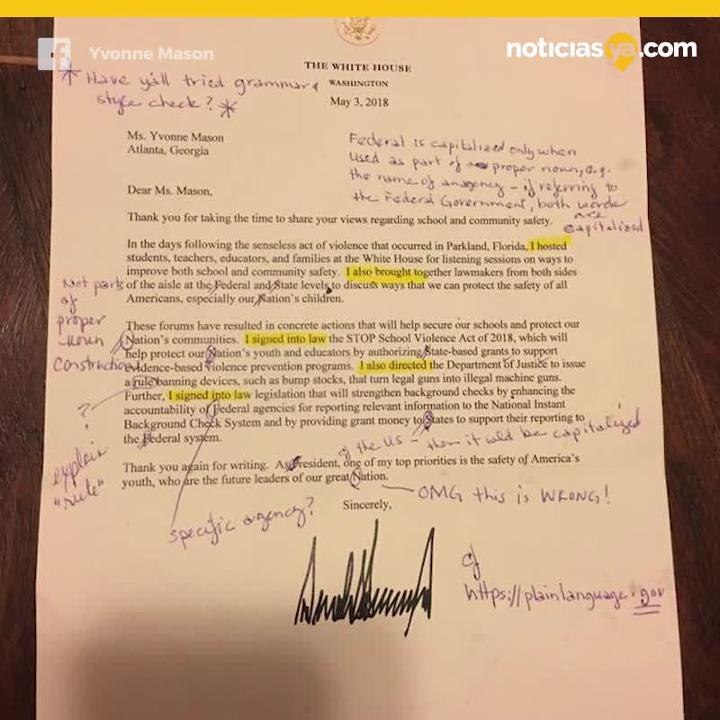 Yvonne Mason
noticiasya.com
* Have y'all tried grammar &
style check? *
THE WHITE HOUSE
WASHINGTON
May 3, 2018
Ms. Yvonne Mason
Atlanta, Georgia
Federal is capitalized only when
used as part of a proper noun, e.g.
the name of an agency - if referring to
the Federal Government, both words
are
capitalized
Dear Ms. Mason,
Thank you for taking the time to share your views regarding school and community safety.
In the days following the senseless act of violence that occurred in Parkland, Florida, I hosted
students, teachers, educators, and families at the White House for listening sessions on ways to
improve both school and community safety. I also brought together lawmakers from both sides
of the aisle at the Federal and State levels to discuss ways that we can protect the safety of all
Americans, especially our Nation's children.
Not part
of
proper
noun
construction
These forums have resulted in concrete actions that will help secure our schools and protect our
Nation's communities. I signed into law the STOP School Violence Act of 2018, which will
help protect our Nation's youth and educators by authorizing State-based grants to support
evidence-based violence prevention programs. I also directed the Department of Justice to issue
a rule banning devices, such as bump stocks, that turn legal guns into illegal machine guns.
Further, I signed into law legislation that will strengthen background checks by enhancing the
accountability of Federal agencies for reporting relevant information to the National Instant
Background Check System and by providing grant money to States to support their reporting to
the Federal system.
?
explain
"rule"
of the US - then it would be capitalized
Thank you again for writing. As President, one of my top priorities is the safety of America's
youth, who are the future leaders of our great Nation.
OMG this is WRONG!
Sincerely,
specific agency?
cf
https://plainlanguage.gov